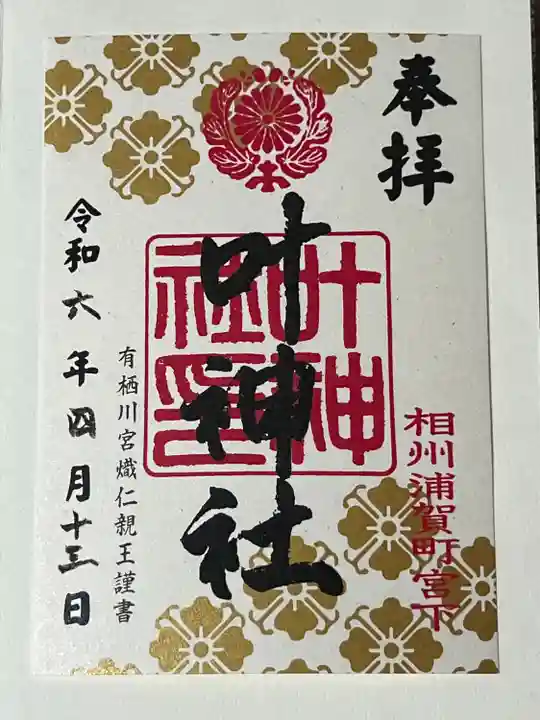 奉拝
相州浦賀町宮下
叶神社
叶神社印
有栖川宮熾仁親王謹書
令和六年四月十三日